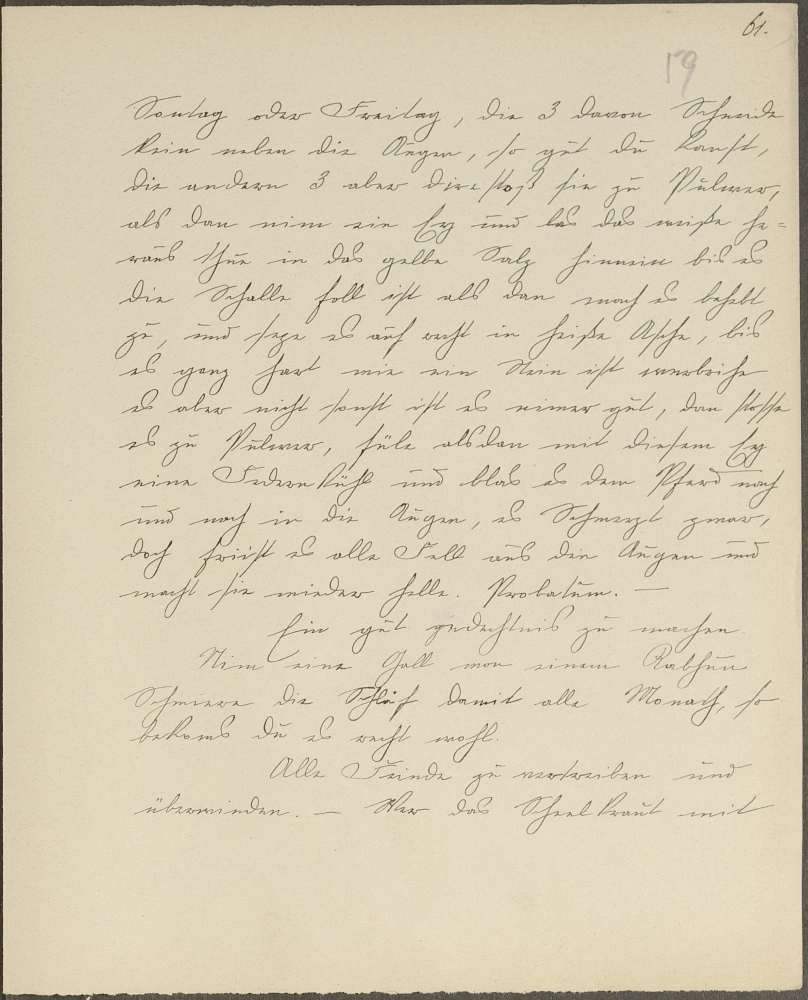 61.
59
Sontag oder Freitag, die 3 davon Schneide
klein neben die Augen, so güt dü kanst,
die andern 3 aber dire stoß sie zü Pulwer,
als dan nim ein Ey und las das weiße he=
raus thue in das gelbe Salz hinnein bis es
die Schalle foll ist als dan mach es behebt
zü, und seze es auf recht in heiße Asche, bis
es ganz hart wie ein Stein ist verbrihe
es aber nicht sonst ist es nimer güt, dan stosse
es zü Pulwer, füle alsdan mit diesem Ey
eine Federn Kühl und blas es dem Pferd nach
und nach in die Augen, es Schmerzt zwar,
doch friist es alle Fell aus den Augen und
macht sie wieder helle. Probatum. —
Ein güt gedechtnis zü machen.
Nim eine Gall von einem Rabhun
Schmiere die Schläf damit alle Monath, so
bekoms dü es recht wohl.
Alle Feinde zü vertreiben und
überwinden. — Wer das Scheelkraut mit